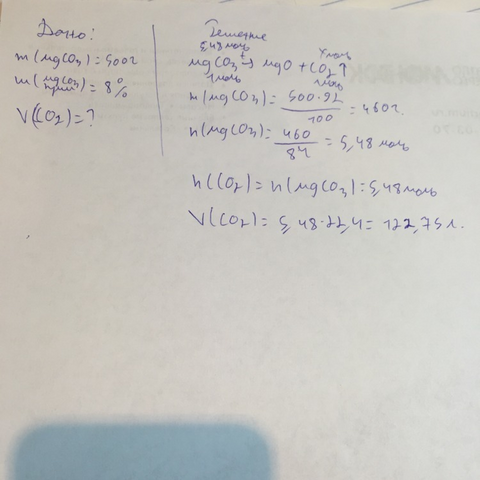 Дано:
m(MgCO₃)=500г
w(MgCO₃ прим)=8%
V(CO₂)=?
Решение
5,48моль Xмоль
MgCO₃ →t MgO + CO₂↑
1моль 1моль
m(MgCO₃)=500·92/100=460г.
n(MgCO₃)=460/84=5,48моль
n(CO₂)=n(MgCO₃)=5,48моль
V(CO₂)=5,48·22,4=122,75л.